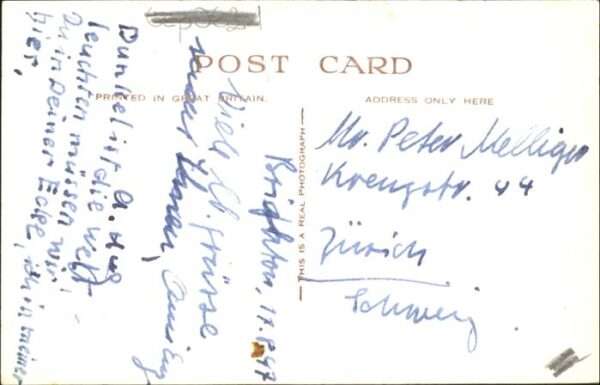 POST CARD
PRINTED IN GREAT BRITAIN.
ADDRESS ONLY HERE
THIS IS A REAL PHOTOGRAPH
Brighton, 17.8.47
Viele lb. Grüsse
Dunkel ist die Welt
leuchten müssen wir!
Du in Deiner Ecke, ich in meiner
hier.
Mr. Peter Melliger
Kreuzstr. 44
Zürich
Schweiz